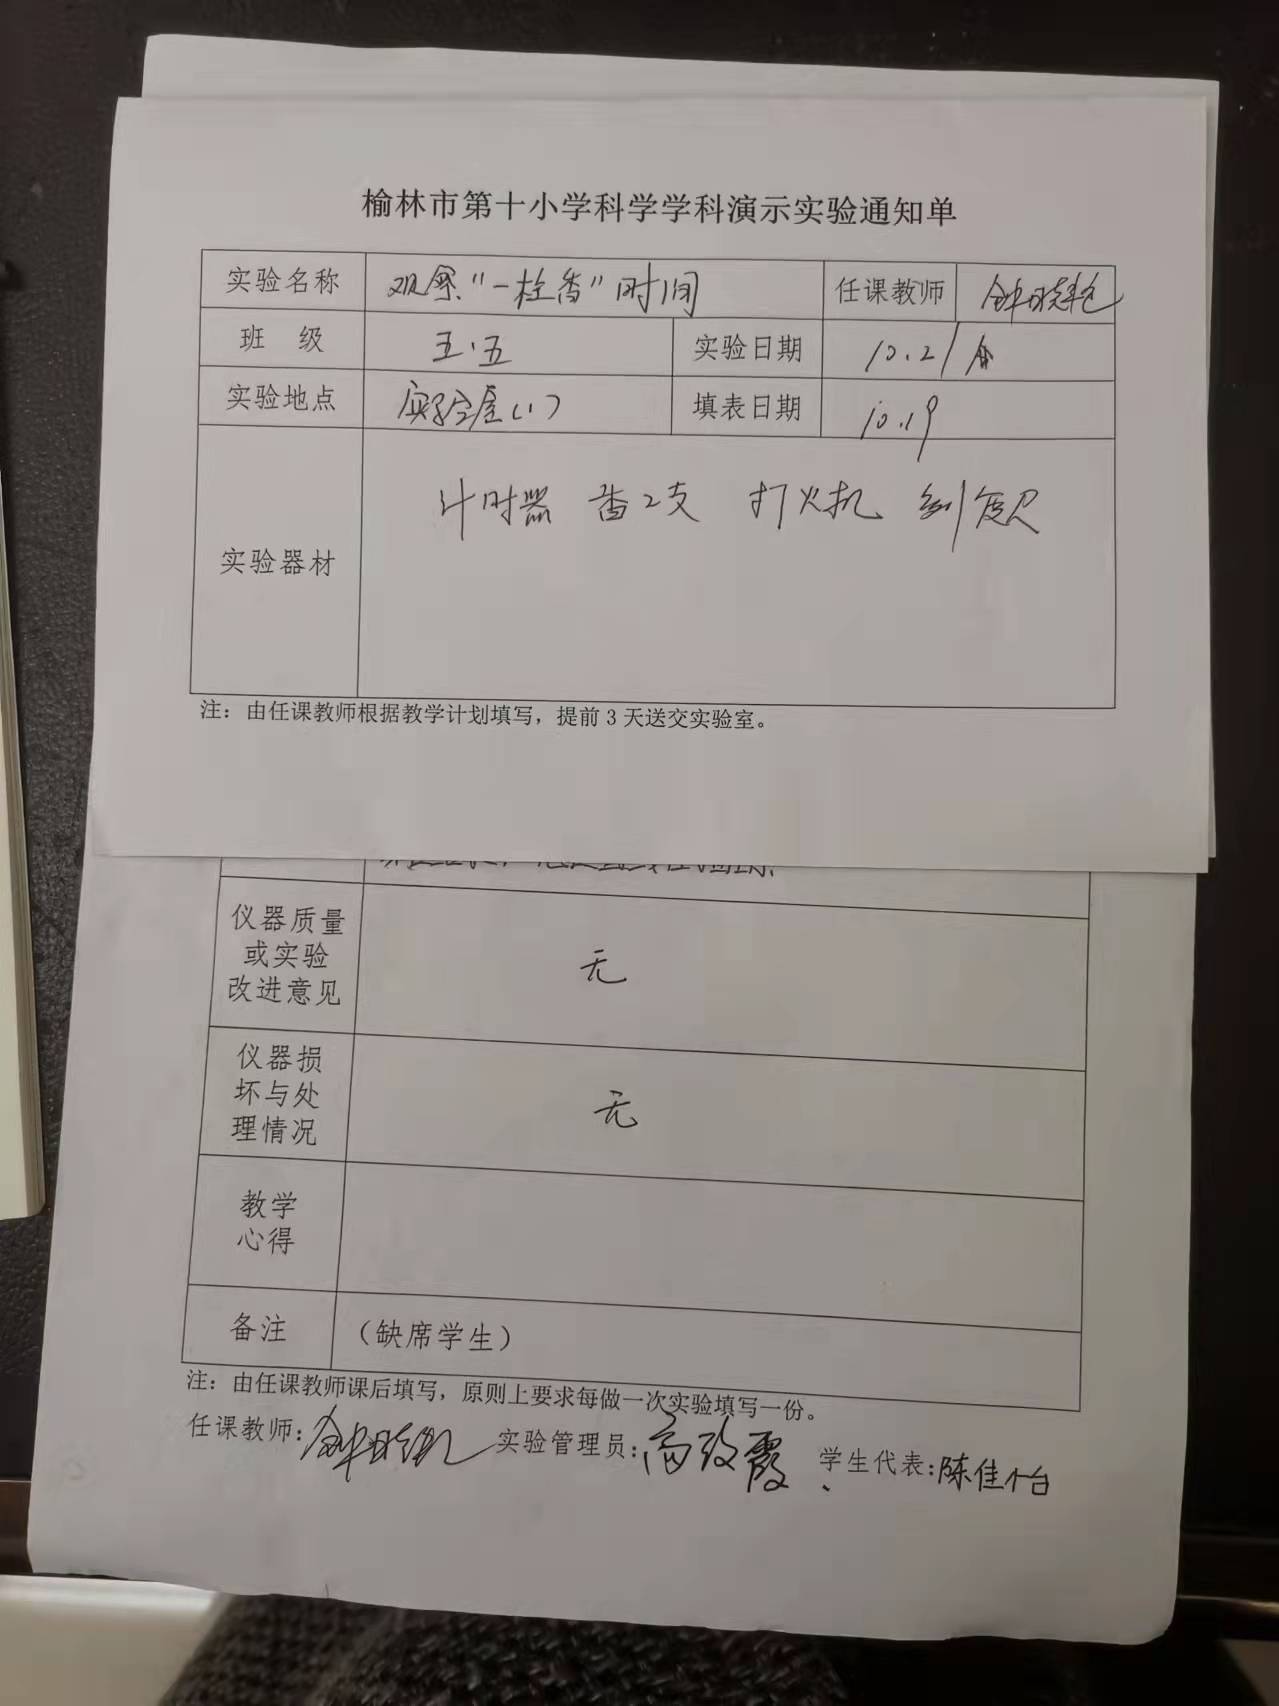 榆林市第十小学科学学科演示实验通知单
实验名称 观察“一柱香”时间 任课教师
班 级 五.五 实验日期 10.21
实验地点 实验室(1) 填表日期 10.19
实验器材 计时器 香2支 打火机 刻度尺
注：由任课教师根据教学计划填写，提前 3 天送交实验室。
仪器质量
或实验
改进意见 无
仪器损
坏与处
理情况 无
教学
心得
备注 （缺席学生）
注：由任课教师课后填写，原则上要求每做一次实验填写一份。
任课教师: 实验管理员:高改霞 学生代表:陈佳怡